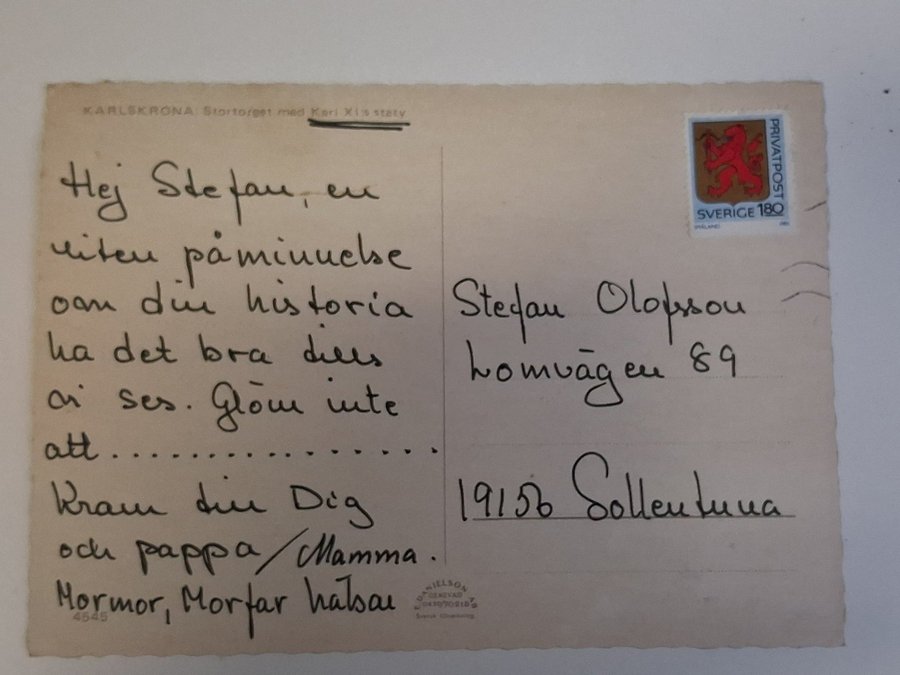 KARLSKRONA: Stortorget med Karl XI:s staty
Hej Stefan, en
liten påminnelse
om din historia
ha det bra tills
vi ses. Glöm inte
att................
Kram till Dig
och pappa /Mamma.
Mormor, Morfar hälsar
4545
PRIVATPOST
SVERIGE 180
SMÅLAND
Stefan Olofsson
Lomvägen 89
19156 Sollentuna
F. DANIELSON AB